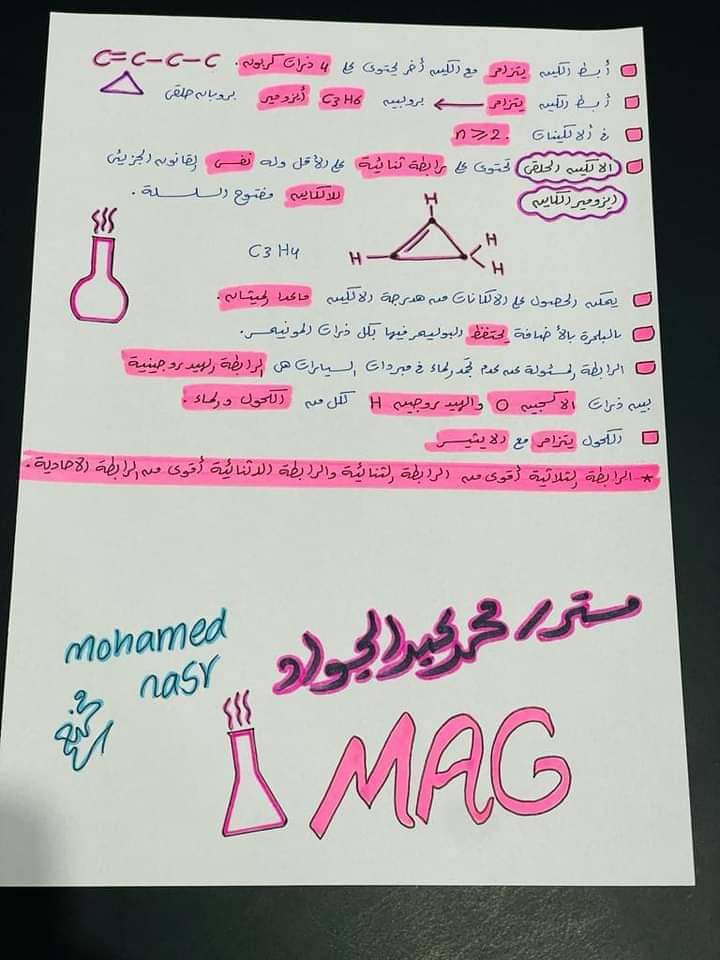 أبسط الكين يتزامر مع الكين أخر يحتوى على 4 ذرات كربون. C=C-C-C
أبسط الكين يتزامر ← بروبين C3H6 أيزومير بروبان حلقى
فى ألالكينات n≥2.
الالكين الحلقى يحتوى على رابطة ثنائية على الأقل وله نفس القانون الجزيئى
ايزومير الكاين للالكاين مفتوح السلسلة.
H
H H
H
C3H4
يمكن الحصول على الالكانات من هدرجة الالكين ماعدا الميثان.
بالبلمرة بالأضافة يحتفظ البوليمر فيها بكل ذرات المونيمر.
الرابطة المسئولة عن عدم تجمد الماء فى مبردات السيارات هى الرابطة الهيدروجينية
بين ذرات الاكسجين O والهيدروجين H لكل من الكحول والماء.
الكحول يتزامر مع الايثير
* الرابطة الثلاثية أقوى من الرابطة الثنائية والرابطة الاثنائية أقوى من الرابطة الاحادية.
مستر/ محمد عبدالجواد
mohamed
nasr
MAG